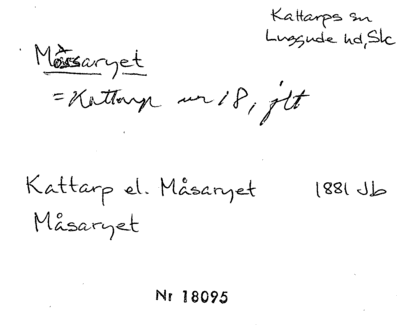 Kattarps sn
Luggude hd, Skc
Måsaryet
= Kattarp nr 18, jlt
Kattarp el. Måsaryet 1881 Jb
Måsaryet
Nr 18095